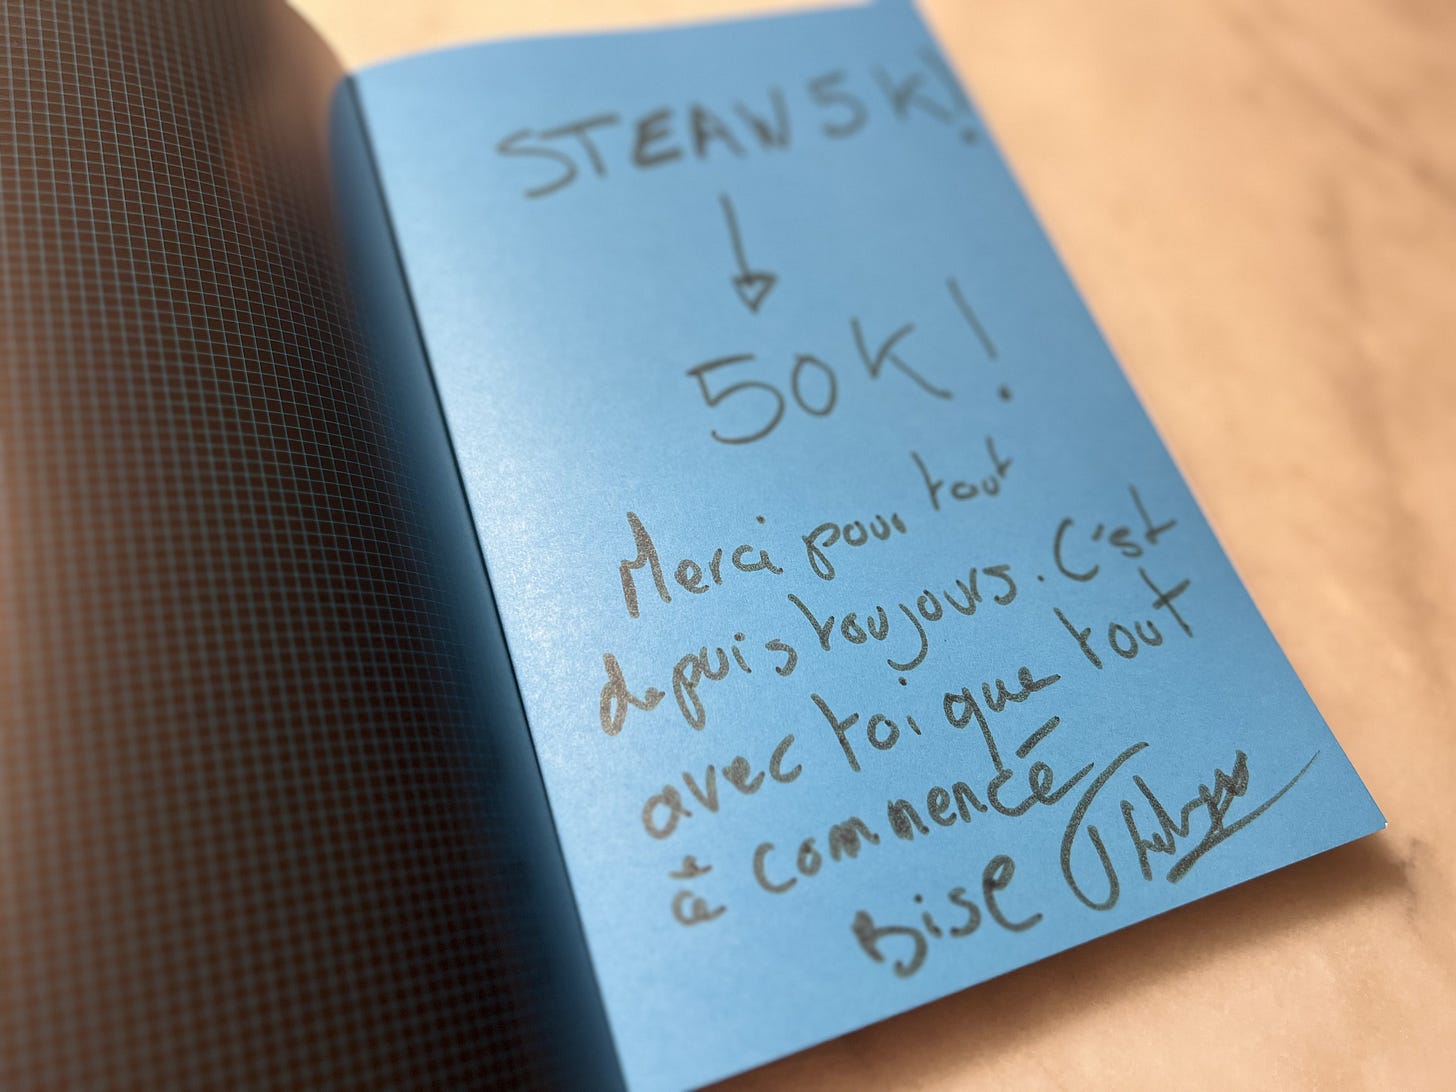 STEAW5K!
50K!
Merci pour tout
depuis toujours. C'est
avec toi que tout
à commencé
Bise